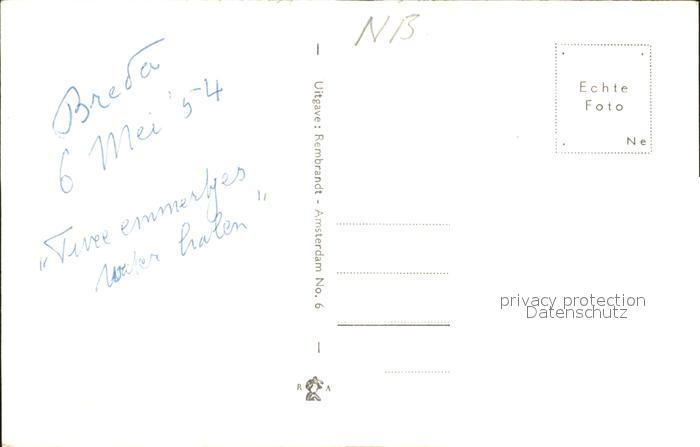 Breda
6 Mei '54
„Twee emmertjes
water halen"
NB
Uitgave: Rembrandt - Amsterdam No. 6
R A
Echte
Foto
Ne
privacy protection
Datenschutz